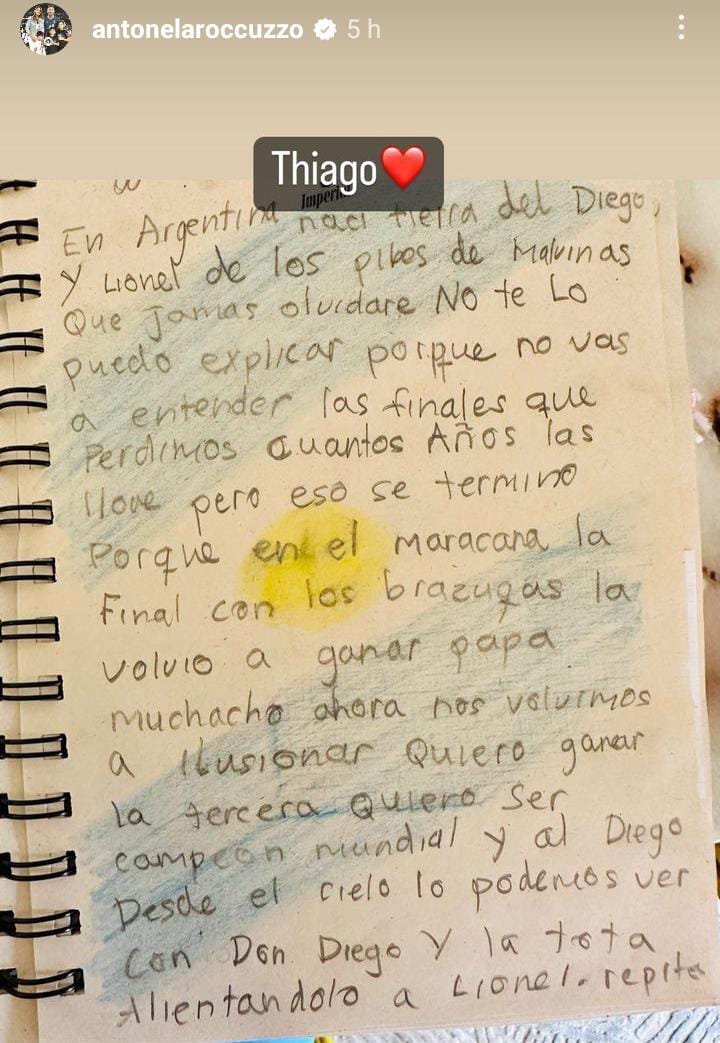 antonelaroccuzzo 5 h
Thiago❤️
Imperi
En Argentina naci tierra del Diego,
y Lionel de los pibes de Malvinas
Que Jamas olvidare NO te Lo
puedo explicar porque no vas
a entender las finales que
Perdimos cuantos Años las
llore pero eso se termino
Porque en el maracana la
Final con los brazugas la
volvio a ganar papa
muchacho ahora nos volvimos
a Ilusionar Quiero ganar
la tercera Quiero Ser
campeon mundial y al Diego
Desde el cielo lo podemos ver
con Don Diego y la tota
Alientandolo a Lionel. repita